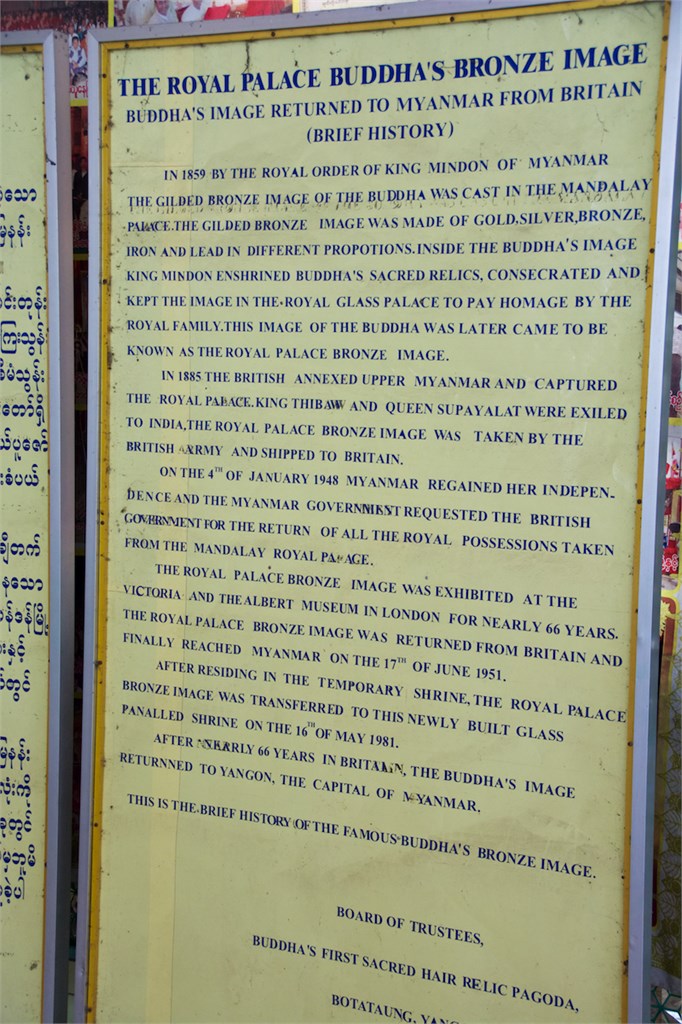 THE ROYAL PALACE BUDDHA'S BRONZE IMAGE
BUDDHA'S IMAGE RETURNED TO MYANMAR FROM BRITAIN
(BRIEF HISTORY)
IN 1859 BY THE ROYAL ORDER OF KING MINDON OF MYANMAR
THE GILDED BRONZE IMAGE OF THE BUDDHA WAS CAST IN THE MANDALAY
PALACE.THE GILDED BRONZE IMAGE WAS MADE OF GOLD,SILVER,BRONZE,
IRON AND LEAD IN DIFFERENT PROPOTIONS.INSIDE THE BUDDHA'S IMAGE
KING MINDON ENSHRINED BUDDHA'S SACRED RELICS, CONSECRATED AND
KEPT THE IMAGE IN THE ROYAL GLASS PALACE TO PAY HOMAGE BY THE
ROYAL FAMILY.THIS IMAGE OF THE BUDDHA WAS LATER CAME TO BE
KNOWN AS THE ROYAL PALACE BRONZE IMAGE.
IN 1885 THE BRITISH ANNEXED UPPER MYANMAR AND CAPTURED
THE ROYAL PALACE.KING THIBAW AND QUEEN SUPAYALAT WERE EXILED
TO INDIA,THE ROYAL PALACE BRONZE IMAGE WAS TAKEN BY THE
BRITISH ARMY AND SHIPPED TO BRITAIN.
ON THE 4TH OF JANUARY 1948 MYANMAR REGAINED HER INDEPEN-
DENCE AND THE MYANMAR GOVERNMENT REQUESTED THE BRITISH
GOVERNMENT FOR THE RETURN OF ALL THE ROYAL POSSESSIONS TAKEN
FROM THE MANDALAY ROYAL PALACE.
THE ROYAL PALACE BRONZE IMAGE WAS EXHIBITED AT THE
VICTORIA AND THE ALBERT MUSEUM IN LONDON FOR NEARLY 66 YEARS.
THE ROYAL PALACE BRONZE IMAGE WAS RETURNED FROM BRITAIN AND
FINALLY REACHED MYANMAR ON THE 17TH OF JUNE 1951.
AFTER RESIDING IN THE TEMPORARY SHRINE,THE ROYAL PALACE
BRONZE IMAGE WAS TRANSFERRED TO THIS NEWLY BUILT GLASS
PANALLED SHRINE ON THE 16TH OF MAY 1981.
AFTER NEARLY 66 YEARS IN BRITAIN, THE BUDDHA'S IMAGE
RETURNNED TO YANGON, THE CAPITAL OF MYANMAR.
THIS IS THE BRIEF HISTORY OF THE FAMOUS BUDDHA'S BRONZE IMAGE.
BOARD OF TRUSTEES,
BUDDHA'S FIRST SACRED HAIR RELIC PAGODA,
BOTATAUNG,